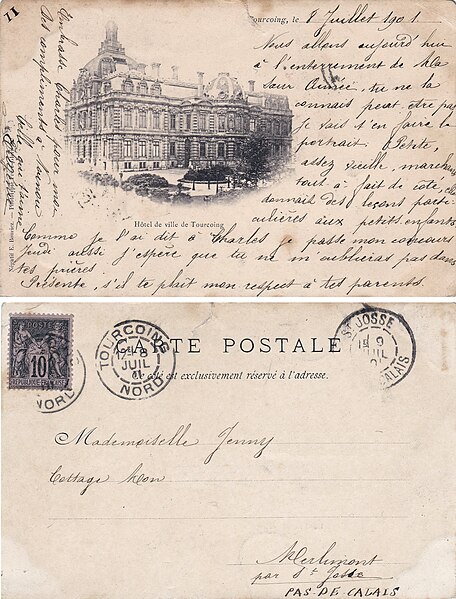 11
Tourcoing, le 8 Juillet 1901
Nous allons aujourd'hui
à l'enterrement de Ma
Sœur Aimée, tu ne la
connais peut être pas
je vais t'en faire le
portrait. Petite,
assez vieille, marchant
tout à fait de côté, elle
donnait des leçons parti-
culières aux petits enfants
Comme je l'ai dit à Charles je passe mon concours
Jeudi aussi j'espère que tu ne m'oublieras pas dans
tes prières.
Présente, s'il te plaît mon respect à tes parents.
Embrasse Charles pour moi
Mes compliments à
Celui qui t'aime
Hôtel de ville de Tourcoing
RÉPUBLIQUE FRANÇAISE
POSTE
10
TOURCOING
8
JUIL
01
NORD
CARTE POSTALE
Ce côté est exclusivement réservé à l'adresse.
ST JOSSE
9
JUIL
CALAIS
Mademoiselle Jenny
Cottage Mon
Merlimont
par St Josse
PAS DE CALAIS